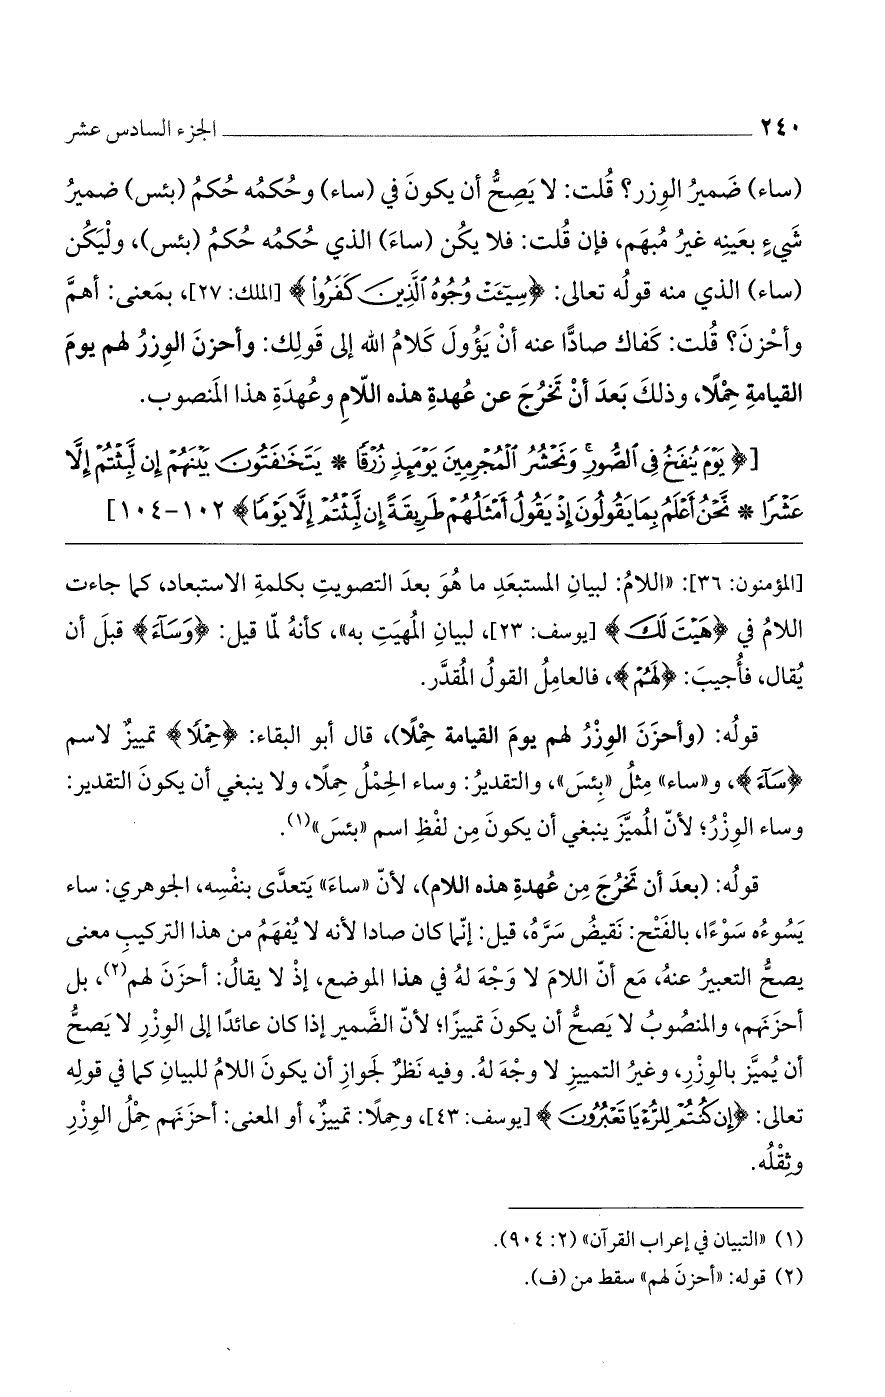 ٢٤٠ الجزء السادس عشر
(ساء) ضَميرُ الوِزر؟ قُلت: لا يَصِحُّ أن يكونَ في (ساء) وحُكمُه حُكمُ (بئس) ضميرُ
شَيءٍ بعَينِه غيرُ مُبهَم، فإن قُلت: فلا يكُن (ساءَ) الذي حُكمُه حُكمُ (بئس)، ولْيَكُن
(ساء) الذي منه قولُه تعالى: ﴿سِيٓـَٔتْ وُجُوهُ ٱلَّذِينَ كَفَرُوا۟﴾ [الملك: ٢٧]، بمَعنى: أهمَّ
وأحْزنَ؟ قُلت: كَفاك صادًّا عنه أنْ يَؤُولَ كَلامُ الله إلى قَولِك: وأحزنَ الوِزرُ لهم يومَ
القيامةِ حِمْلًا، وذلكَ بَعدَ أنْ تَخرُجَ عن عُهدةِ هذه اللّامِ وعُهدَةِ هذا المَنصوب.
[﴿يَوْمَ يُنفَخُ فِى ٱلصُّورِ ۚ وَنَحْشُرُ ٱلْمُجْرِمِينَ يَوْمَئِذٍ زُرْقًا * يَتَخَـٰفَتُونَ بَيْنَهُمْ إِن لَّبِثْتُمْ إِلَّا
عَشْرًا * نَّحْنُ أَعْلَمُ بِمَا يَقُولُونَ إِذْ يَقُولُ أَمْثَلُهُمْ طَرِيقَةً إِن لَّبِثْتُمْ إِلَّا يَوْمًا﴾ ١٠٢-١٠٤]
[المؤمنون: ٣٦]: «اللامُ: لبيانِ المستبعَدِ ما هُوَ بعدَ التصويتِ بكلمةِ الاستبعاد، كما جاءت
اللامُ في ﴿هَيْتَ لَكَ﴾ [يوسف: ٢٣]، لبيانِ المُهيَتِ به»، كأنهُ لمّا قيل: ﴿وَسَآءَ﴾ قبلَ أن
يُقال، فأُجيبَ: ﴿لَهُمْ﴾، فالعامِلُ القولُ المُقدَّر.
قولُه: (وأحزَنَ الوِزْرُ لهم يومَ القيامة حِمْلًا)، قال أبو البقاء: ﴿حِمْلًا﴾ تمييزٌ لاسم
﴿سَآءَ﴾، و«ساء» مِثلُ «بِئسَ»، والتقديرُ: وساء الحِمْلُ حِملًا، ولا ينبغي أن يكونَ التقدير:
وساء الوِزْرُ؛ لأنّ المُميَّزَ ينبغي أن يكونَ مِن لفْظِ اسم «بئسَ»(١).
قولُه: (بعدَ أن تَخرُجَ مِن عُهدةِ هذه اللام)، لأنّ «ساءَ» يَتعدَّى بنفْسِه، الجوهري: ساء
يَسُوءُه سَوْءًا، بالفَتْح: نَقيضُ سَرَّهُ، قيل: إنّما كان صادا لأنه لا يُفهَمُ من هذا التركيبِ معنى
يصحُّ التعبيرُ عنهُ، مَع أنّ اللامَ لا وَجْهَ لهُ في هذا الموضع، إذْ لا يقالُ: أحزَنَ لهم(٢)، بل
أحزَنَهم، والمنصُوبُ لا يَصحُّ أن يكونَ تمييزًا؛ لأنّ الضَّمير إذا كان عائدًا إلى الوِزْرِ لا يَصحُّ
أن يُميَّز بالوِزْرِ، وغيرُ التمييزِ لا وجْهَ لهُ. وفيه نَظرٌ لَجوازِ أن يكونَ اللامُ للبيانِ كما في قولِه
تعالى: ﴿إِن كُنتُمْ لِلرُّءْيَا تَعْبُرُونَ﴾ [يوسف: ٤٣]، وحِملًا: تمييزٌ، أو المعنى: أحزَنَهم حِمْلُ الوِزْرِ
وثِقْلُه.
(١) «التبيان في إعراب القرآن» (٢: ٩٠٤).
(٢) قوله: «أحزنَ لهم» سقط من (ف).